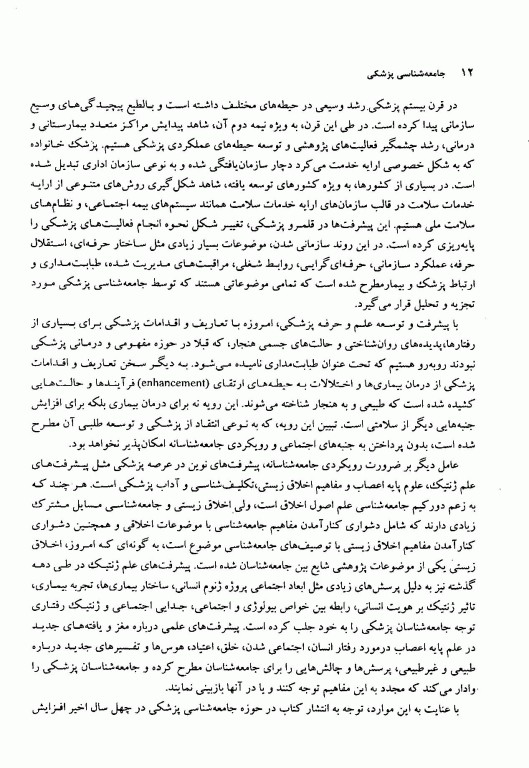 ۱۲ جامعه‌شناسی پزشکی
در قرن بیستم پزشکی رشد وسیعی در حیطه‌های مختلف داشته است و بالطبع پیچیدگی‌های وسیع
سازمانی پیدا کرده است. در طی این قرن، به ویژه نیمه دوم آن، شاهد پیدایش مراکز متعدد بیمارستانی و
درمانی، رشد چشمگیر فعالیت‌های پژوهشی و توسعه حیطه‌های عملکردی پزشکی هستیم. پزشک خانواده
که به شکل خصوصی ارایه خدمت می‌کرد دچار سازمان‌یافتگی شده و به نوعی سازمان اداری تبدیل شده
است. در بسیاری از کشورها، به ویژه کشورهای توسعه یافته، شاهد شکل‌گیری روش‌های متنوعی از ارایه
خدمات سلامت در قالب سازمان‌های ارایه خدمات سلامت همانند سیستم‌های بیمه اجتماعی، و نظام‌های
سلامت ملی هستیم. این پیشرفت‌ها در قلمرو پزشکی، تغییر شکل نحوه انجام فعالیت‌های پزشکی را
پایه‌ریزی کرده است. در این روند سازمانی شدن، موضوعات بسیار زیادی مثل ساختار حرفه‌ای، استقلال
حرفه، عملکرد سازمانی، حرفه‌ای‌گرایی، روابط شغلی، مراقبت‌های مدیریت شده، طبابت‌مداری و
ارتباط پزشک و بیمارمطرح شده است که تمامی موضوعاتی هستند که توسط جامعه‌شناسی پزشکی مورد
تجزیه و تحلیل قرار می‌گیرد.
با پیشرفت و توسعه علم و حرفه پزشکی، امروزه با تعاریف و اقدامات پزشکی برای بسیاری از
رفتارها،پدیده‌های روان‌شناختی و حالت‌های جسمی هنجار، که قبلا در حوزه مفهومی و درمانی پزشکی
نبودند روبه‌رو هستیم که تحت عنوان طبابت‌مداری نامیده می‌شود. به دیگر سخن تعاریف و اقدامات
پزشکی از درمان بیماری‌ها و اختلالات به حیطه‌های ارتقای (enhancement) فرآیندها و حالت‌هایی
کشیده شده است که طبیعی و به هنجار شناخته می‌شوند. این رویه نه برای درمان بیماری بلکه برای افزایش
جنبه‌هایی دیگر از سلامتی است. تبیین این رویه، که به نوعی انتقاد از پزشکی و توسعه طلبی آن مطرح
شده است، بدون پرداختن به جنبه‌های اجتماعی و رویکردی جامعه‌شناسانه امکان‌پذیر نخواهد بود.
عامل دیگر بر ضرورت رویکردی جامعه‌شناسانه، پیشرفت‌های نوین در عرصه پزشکی مثل پیشرفت‌های
علم ژنتیک، علوم پایه اعصاب و مفاهیم اخلاق زیستی،تکلیف‌شناسی و آداب پزشکی است. هر چند که
به زعم دورکیم جامعه‌شناسی علم اصول اخلاق است، ولی اخلاق زیستی و جامعه‌شناسی مسایل مشترک
زیادی دارند که شامل دشواری کنارآمدن مفاهیم جامعه‌شناسی با موضوعات اخلاقی و همچنین دشواری
کنارآمدن مفاهیم اخلاق زیستی با توصیف‌های جامعه‌شناسی موضوع است، به گونه‌ای که امروز، اخلاق
زیستی یکی از موضوعات پژوهشی شایع بین جامعه‌شناسان شده است. پیشرفت‌های علم ژنتیک در طی دهه
گذشته نیز به دلیل پرسش‌های زیادی مثل ابعاد اجتماعی پروژه ژنوم انسانی، ساختار بیماری‌ها، تجربه بیماری،
تاثیر ژنتیک بر هویت انسانی، رابطه بین خواص بیولوژی و اجتماعی، جدایی اجتماعی و ژنتیک رفتاری
توجه جامعه‌شناسان پزشکی را به خود جلب کرده است. پیشرفت‌های علمی درباره مغز و یافته‌های جدید
در علم پایه اعصاب درمورد رفتار انسان، اجتماعی شدن، خلق، اعتیاد، هوس‌ها و تفسیرهای جدید درباره
طبیعی و غیرطبیعی، پرسش‌ها و چالش‌هایی را برای جامعه‌شناسان مطرح کرده و جامعه‌شناسان پزشکی را
وادار می‌کند که مجدد به این مفاهیم توجه کنند و یا در آنها بازبینی نمایند.
با عنایت به این موارد، توجه به انتشار کتاب در حوزه جامعه‌شناسی پزشکی در چهل سال اخیر افزایش